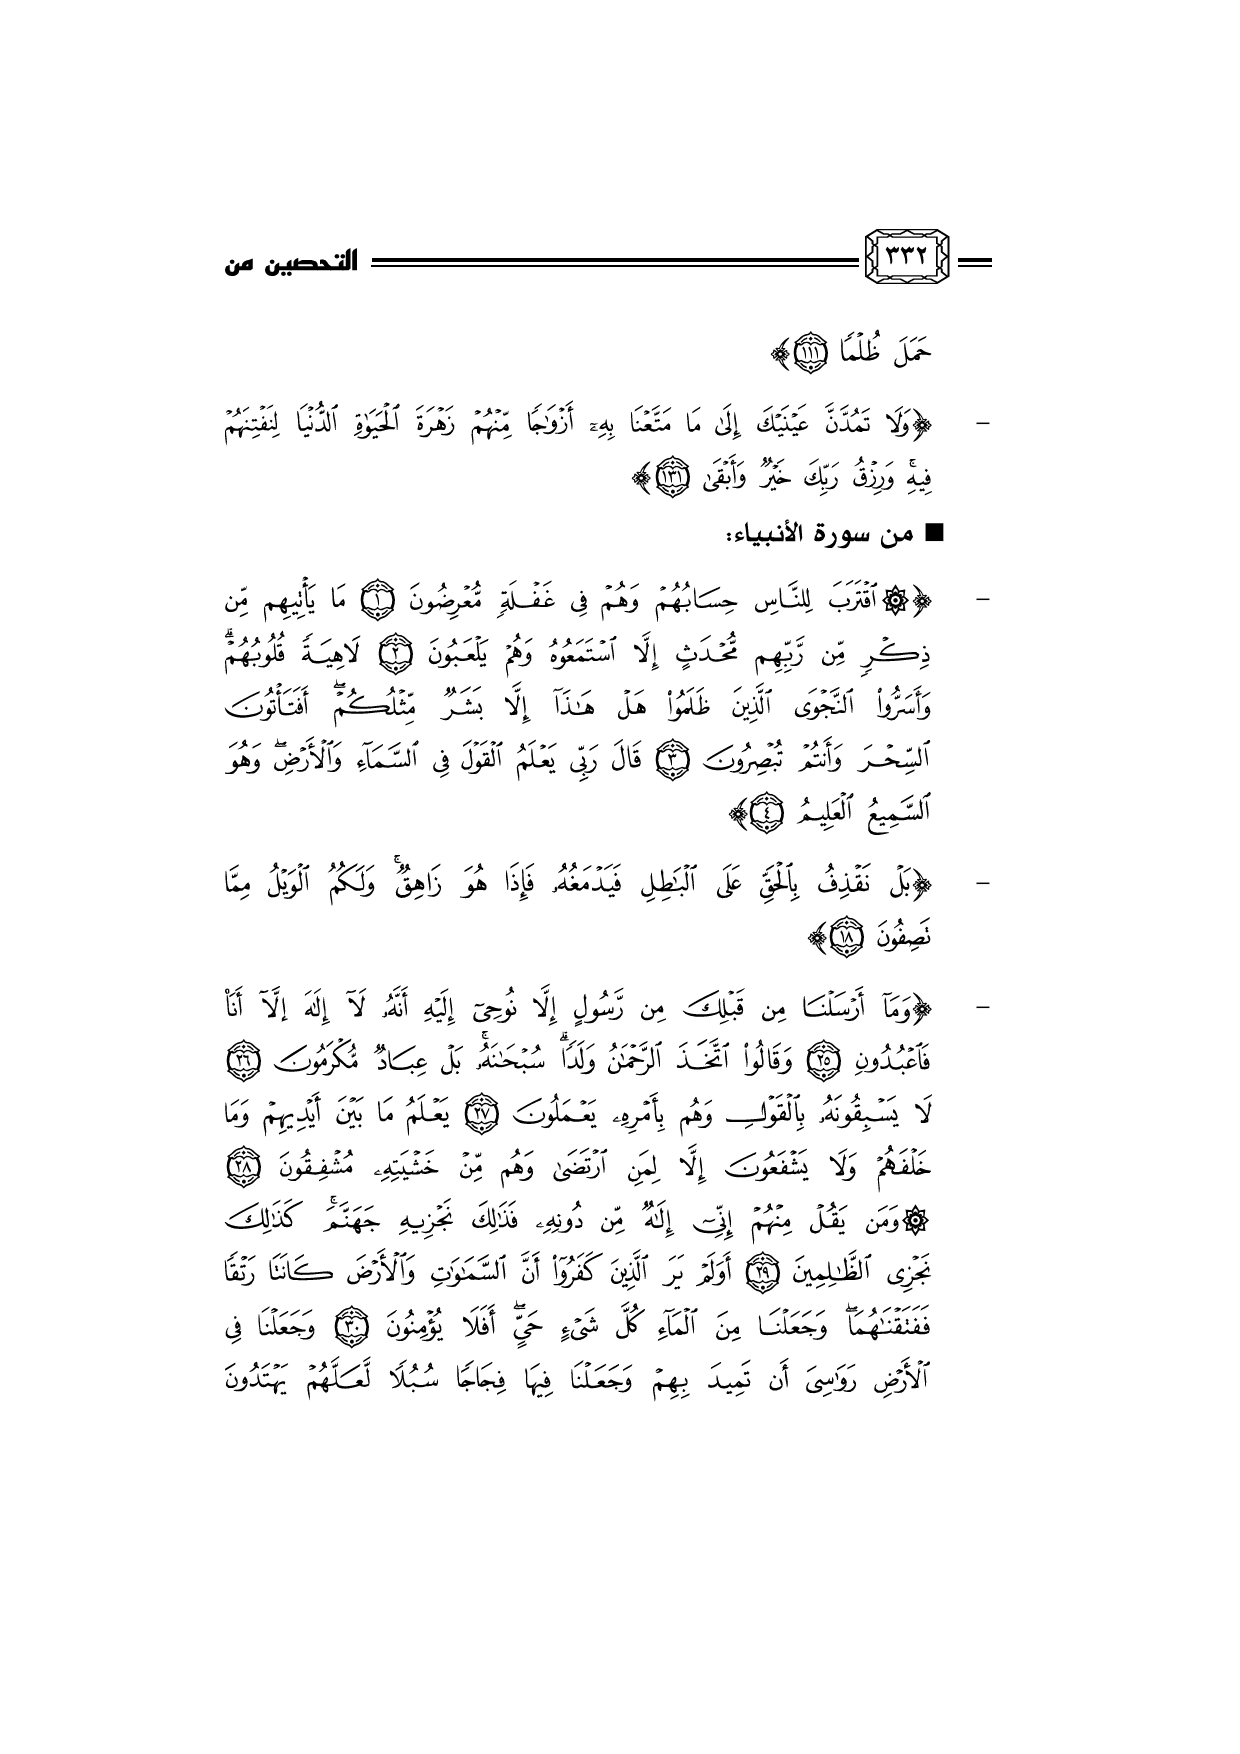 ٣٣٢ التحصين من
حَمَلَ ظُلْمًا ﴿١١١﴾﴾
- ﴿وَلَا تَمُدَّنَّ عَيْنَيْكَ إِلَىٰ مَا مَتَّعْنَا بِهِۦٓ أَزْوَٰجًا مِّنْهُمْ زَهْرَةَ ٱلْحَيَوٰةِ ٱلدُّنْيَا لِنَفْتِنَهُمْ
فِيهِ ۚ وَرِزْقُ رَبِّكَ خَيْرٌ وَأَبْقَىٰ ﴿١٣١﴾﴾
■ من سورة الأنبياء:
- ﴿۞ ٱقْتَرَبَ لِلنَّاسِ حِسَابُهُمْ وَهُمْ فِى غَفْلَةٍ مُّعْرِضُونَ ﴿١﴾ مَا يَأْتِيهِم مِّن
ذِكْرٍ مِّن رَّبِّهِم مُّحْدَثٍ إِلَّا ٱسْتَمَعُوهُ وَهُمْ يَلْعَبُونَ ﴿٢﴾ لَاهِيَةً قُلُوبُهُمْ ۗ
وَأَسَرُّوا۟ ٱلنَّجْوَى ٱلَّذِينَ ظَلَمُوا۟ هَلْ هَـٰذَآ إِلَّا بَشَرٌ مِّثْلُكُمْ ۖ أَفَتَأْتُونَ
ٱلسِّحْرَ وَأَنتُمْ تُبْصِرُونَ ﴿٣﴾ قَالَ رَبِّى يَعْلَمُ ٱلْقَوْلَ فِى ٱلسَّمَآءِ وَٱلْأَرْضِ ۖ وَهُوَ
ٱلسَّمِيعُ ٱلْعَلِيمُ ﴿٤﴾﴾
- ﴿بَلْ نَقْذِفُ بِٱلْحَقِّ عَلَى ٱلْبَـٰطِلِ فَيَدْمَغُهُۥ فَإِذَا هُوَ زَاهِقٌ ۚ وَلَكُمُ ٱلْوَيْلُ مِمَّا
تَصِفُونَ ﴿١٨﴾﴾
- ﴿وَمَآ أَرْسَلْنَا مِن قَبْلِكَ مِن رَّسُولٍ إِلَّا نُوحِىٓ إِلَيْهِ أَنَّهُۥ لَآ إِلَـٰهَ إِلَّآ أَنَا۠
فَٱعْبُدُونِ ﴿٢٥﴾ وَقَالُوا۟ ٱتَّخَذَ ٱلرَّحْمَـٰنُ وَلَدًا ۗ سُبْحَـٰنَهُۥ ۚ بَلْ عِبَادٌ مُّكْرَمُونَ ﴿٢٦﴾
لَا يَسْبِقُونَهُۥ بِٱلْقَوْلِ وَهُم بِأَمْرِهِۦ يَعْمَلُونَ ﴿٢٧﴾ يَعْلَمُ مَا بَيْنَ أَيْدِيهِمْ وَمَا
خَلْفَهُمْ وَلَا يَشْفَعُونَ إِلَّا لِمَنِ ٱرْتَضَىٰ وَهُم مِّنْ خَشْيَتِهِۦ مُشْفِقُونَ ﴿٢٨﴾
۞ وَمَن يَقُلْ مِنْهُمْ إِنِّىٓ إِلَـٰهٌ مِّن دُونِهِۦ فَذَٰلِكَ نَجْزِيهِ جَهَنَّمَ ۚ كَذَٰلِكَ
نَجْزِى ٱلظَّـٰلِمِينَ ﴿٢٩﴾ أَوَلَمْ يَرَ ٱلَّذِينَ كَفَرُوٓا۟ أَنَّ ٱلسَّمَـٰوَٰتِ وَٱلْأَرْضَ كَانَتَا رَتْقًا
فَفَتَقْنَـٰهُمَا ۖ وَجَعَلْنَا مِنَ ٱلْمَآءِ كُلَّ شَىْءٍ حَىٍّ ۖ أَفَلَا يُؤْمِنُونَ ﴿٣٠﴾ وَجَعَلْنَا فِى
ٱلْأَرْضِ رَوَٰسِىَ أَن تَمِيدَ بِهِمْ وَجَعَلْنَا فِيهَا فِجَاجًا سُبُلًا لَّعَلَّهُمْ يَهْتَدُونَ